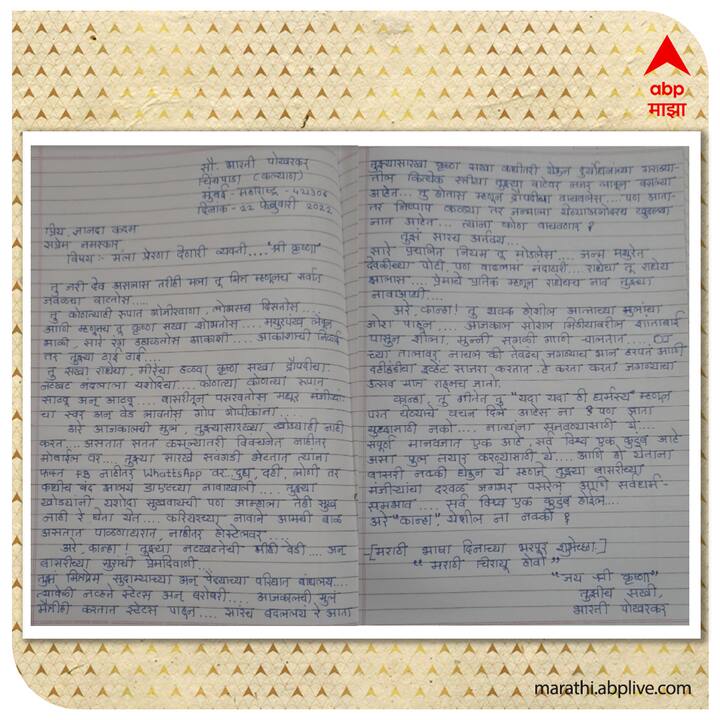 abp
माझा
सौ. भारती पोखरकर
चिंचपाडा (कल्याण)
मुंबई - महाराष्ट्र - 421306
दिनांक - 22 फेब्रुवारी 2022
प्रिय, ज्ञानदा कदम
सप्रेम नमस्कार,
विषय:- मला प्रेरणा देणारी व्यक्ती...."श्री कृष्ण"
तू जरी देव असलास तरीही मला तू मित्र म्हणूनच सर्वात
जवळचा वाटतोस.....
तू कोणत्याही रूपात गोजीरवाणा, लोभसच दिसतोस....
आणि म्हणूनच तू कृष्ण सखा शोभतोस.... मयुरपंख लेवून
भाळी, सारे रंग उधळतोस आकाशी.... आकाशाची निळाई
तर तुझ्या ठाई ठाई....
तू सखा राधेचा, मीरेचा हळवा कृष्ण सखा द्रौपदीचा
नटखट नंदलाला यशोदेचा.... कोणत्या कोणत्या रूपात
साठवू अन् आठवू.... बासरीतून पसरवतोस मधुर मंजीऱ्यां-
चा स्वर अन् वेड लावतोस गोप गोपीकांना....
अरे आजकालची मुलं, तुझ्यासारख्या खोड्याही नाही
करत.... असतात सतत कसल्यातरी विवंचनेत नाहीतर
मोबाईल वर.... तुझ्या सारखे सवंगडी भेटतात त्यांना
फक्त FB नाहीतर WhattsApp वर.. दुध, दही, लोणी तर
कधीच बंद झालय डाएटच्या नावाखाली.... तुझ्या
खोड्यांनी यशोदा सुखवायची पण आम्हाला तेही सुख
नाही रे घेता येत.... करियरच्या नावाने आमची बाळं
असतात पाळणाघरात, नाहीतर होस्टेलवर....
अरे, कान्हा! तुझ्या नटखटतेची मीही वेडी.... अन्
बासरीच्या सुरांची प्रेमदिवाणी...
तुझं मित्रप्रेम सुदाम्याच्या अन् पेंद्याच्या परिघात बांधलय....
त्यावेळी नव्हते स्टेटस अन् बरोबरी.... आजकालची मुलं
मैत्रीही करतात स्टेटस पाहून.... सारंच बदललय रे आता
तुझ्यासारखा कृष्ण सखा कधीतरी येईल दुर्योधनांच्या
कित्येक स्त्रीया तुझ्या वाटेवर नजर लावून बसल्या
आहेत... तू होतास म्हणून द्रौपदीला वाचवलस.... पण आता-
तर निष्पाप कळ्या तर जन्माला येण्याअगोदरच खुडल्या
जात आहेत.... त्यांना कोण वाचवणार?
तुझं सारंच अतर्क्य....
सारे प्रचलित नियम तू मोडलेस.... जन्म मथुरेत
देवकीच्या पोटी, पण वाढलास नंदाघरी.... राधेचा तू राधेय
झालास.... प्रेमाचे प्रतिक म्हणून राधेचच नाव तुझ्या
नावाआधी....
अरे, कान्हा! तू थक्क होशील आताच्या मुलांचा
जोश पाहून.... आजकाल सोशल मिडीयावरील शांताबाई
पासून शीला, मुन्नी सगळी गाणी चालतात....
च्या तालावर नाचलं की तेवढंच जगण्याचं भान हरपतं आणि
दहीहंडीचा इव्हेंट साजरा करतात. हे करता करता जगण्याचा
उत्सव मात्र राहूनच जातो.
कान्हा, तू गीतेत तु "यदा यदा ही धर्मस्य" म्हणून
परत येण्याचे वचन दिलं आहेस ना? पण आता
युद्धासाठी नको.... नात्यांना सुनवण्यासाठी ये....
संपूर्ण मानवजात एक आहे, सर्व विश्व एक कुटुंब आहे
असा पुल तयार करण्यासाठी ये.... आणि हो येताना
बासरी नक्की घेऊन ये म्हणजे तुझ्या बासरीच्या
मंजीऱ्यांचा दरवळ जगभर पसरेल आणि सर्वधर्म-
समभाव.... सर्व विश्व एक कुटुंब होईल....
अरे "कान्हा", येशील ना नक्की?
-[मराठी भाषा दिनाच्या भरपूर शुभेच्छा.]
"मराठी चिरायू होवो"
"जय श्री कृष्ण"
तुझीच सखी,
भारती पोखरकर
marathi.abplive.com